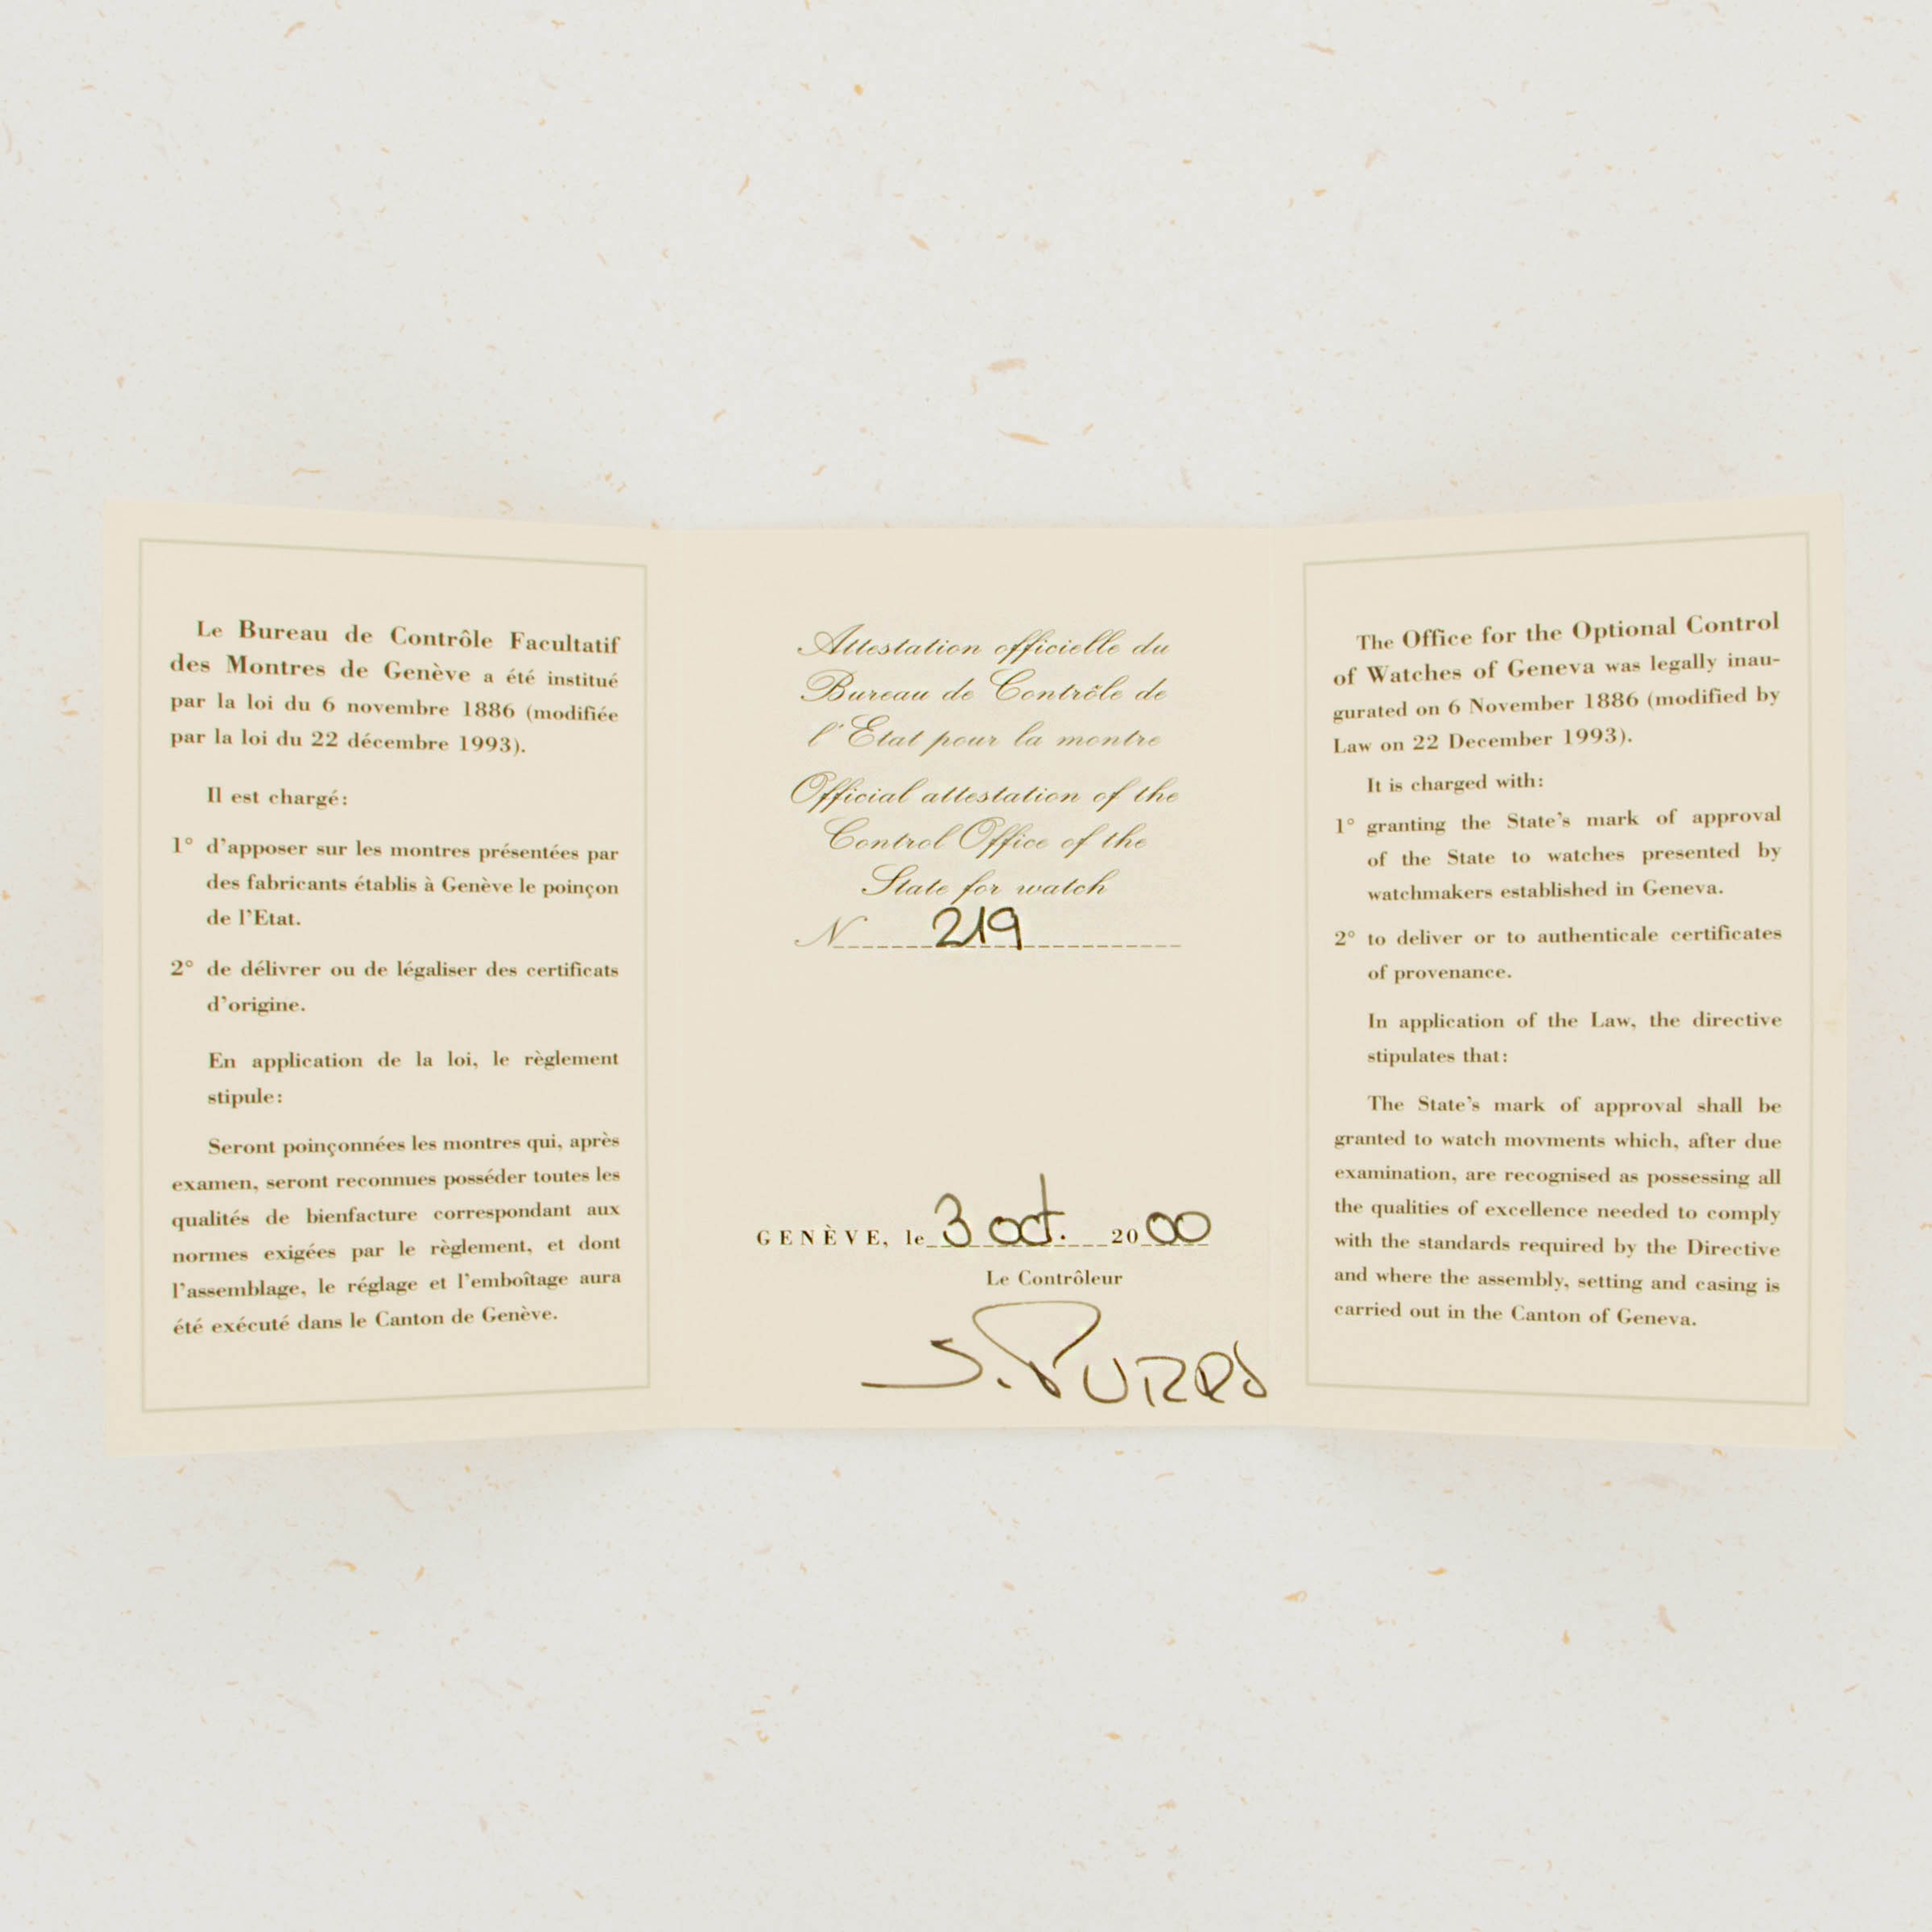 Le Bureau de Contrôle Facultatif
des Montres de Genève a été institué
par la loi du 6 novembre 1886 (modifiée
par la loi du 22 décembre 1993).
Il est chargé:
1° d'apposer sur les montres présentées par
des fabricants établis à Genève le poinçon
de l'Etat.
2° de délivrer ou de légaliser des certificats
d'origine.
En application de la loi, le règlement
stipule:
Seront poinçonnées les montres qui, après
examen, seront reconnues posséder toutes les
qualités de bienfacture correspondant aux
normes exigées par le règlement, et dont
l'assemblage, le réglage et l'emboîtage aura
été exécuté dans le Canton de Genève.
Attestation officielle du
Bureau de Contrôle de
l'Etat pour la montre
Official attestation of the
Control Office of the
State for watch
N 219
GENÈVE, le 3 oct. 2000
Le Contrôleur
The Office for the Optional Control
of Watches of Geneva was legally inau-
gurated on 6 November 1886 (modified by
Law on 22 December 1993).
It is charged with:
1° granting the State's mark of approval
of the State to watches presented by
watchmakers established in Geneva.
2° to deliver or to authenticale certificates
of provenance.
In application of the Law, the directive
stipulates that:
The State's mark of approval shall be
granted to watch movments which, after due
examination, are recognised as possessing all
the qualities of excellence needed to comply
with the standards required by the Directive
and where the assembly, setting and casing is
carried out in the Canton of Geneva.